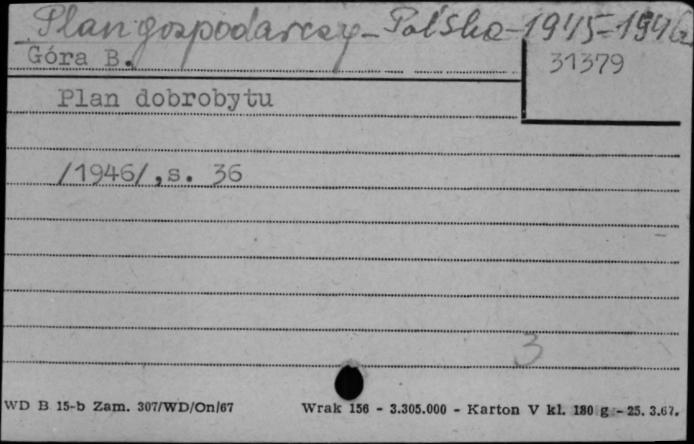 Plan gospodarczy - Polska - 1945-1946
Góra B.
31379
Plan dobrobytu
/1946/,s. 36
3
WD B 15-b Zam. 307/WD/On/67 Wrak 156 - 3.305.000 - Karton V kl. 180 g - 25. 3.67.